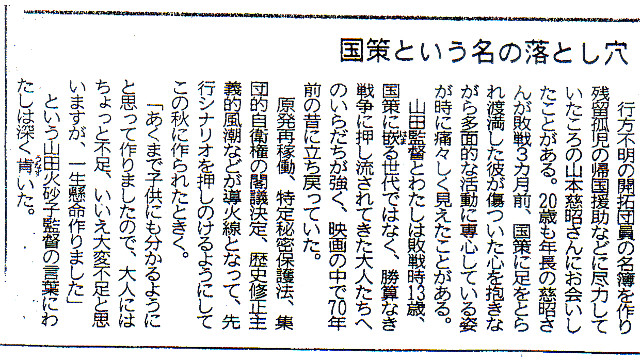 国策という名の落とし穴
行方不明の開拓団員の名簿を作り
残留孤児の帰国援助などに尽力して
いたころの山本慈昭さんにお会いし
たことがある。20歳も年長の慈昭さ
んが敗戦3カ月前、国策に足をとら
れ渡満した彼が傷ついた心を抱きな
がら多面的な活動に専心している姿
が時に痛々しく見えたことがある。
山田監督とわたしは敗戦時13歳、
国策に嵌る世代ではなく、勝算なき
戦争に押し流されてきた大人たちへ
のいらだちが強く、映画の中で70年
前の昔に立ち戻っていた。
原発再稼働、特定秘密保護法、集
団的自衛権の閣議決定、歴史修正主
義的風潮などが導火線となって、先
行シナリオを押しのけるようにして
この秋に作られたときく。
「あくまで子供にも分かるように
と思って作りましたので、大人には
ちょっと不足、いいえ大変不足と思
いますが、一生懸命作りました」
という山田火砂子監督の言葉にわ
たしは深く肯いた。